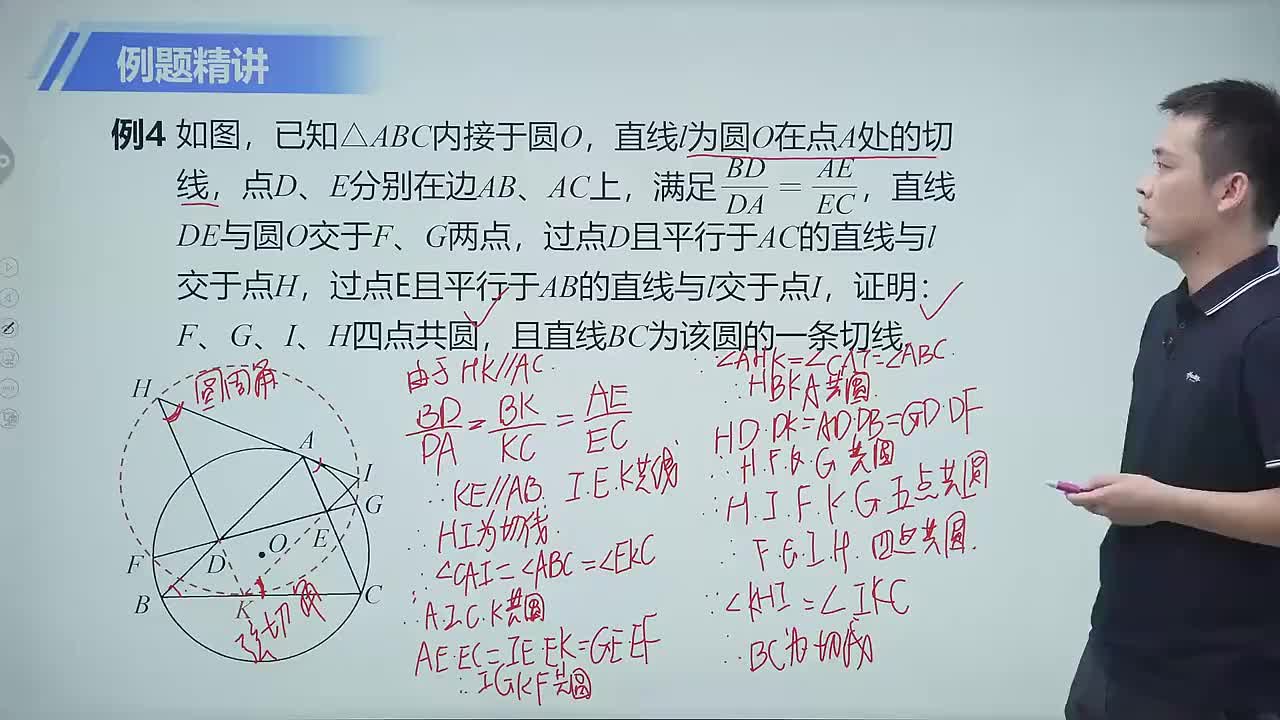 例题精讲
例4 如图，已知△ABC内接于圆O，直线l为圆O在点A处的切
线，点D、E分别在边AB、AC上，满足BD/DA=AE/EC，直线
DE与圆O交于F、G两点，过点D且平行于AC的直线与l
交于点H，过点E且平行于AB的直线与l交于点I，证明：
F、G、I、H四点共圆，且直线BC为该圆的一条切线.
H
圆周角
A
I
G
F
D
O
E
B
K
C
弦切角
由于HK//AC.
BD/DA=BK/KC=AE/EC
∴KE//AB. I.E.K共线
∵HI为切线.
∴∠CAI=∠ABC=∠EKC
∴A.I.C.K共圆
AE·EC=IE·EK=GE·EF
∴IGKF共圆
∵∠AHK=∠CAI=∠ABC.
∴HBKA共圆.
HD·DK=AD·DB=GD·DF
∴H.F.K.G共圆
∴H.I.F.K.G五点共圆
∴F.G.I.H.四点共圆.
∵∠KHI=∠IKC
∴BC为切线